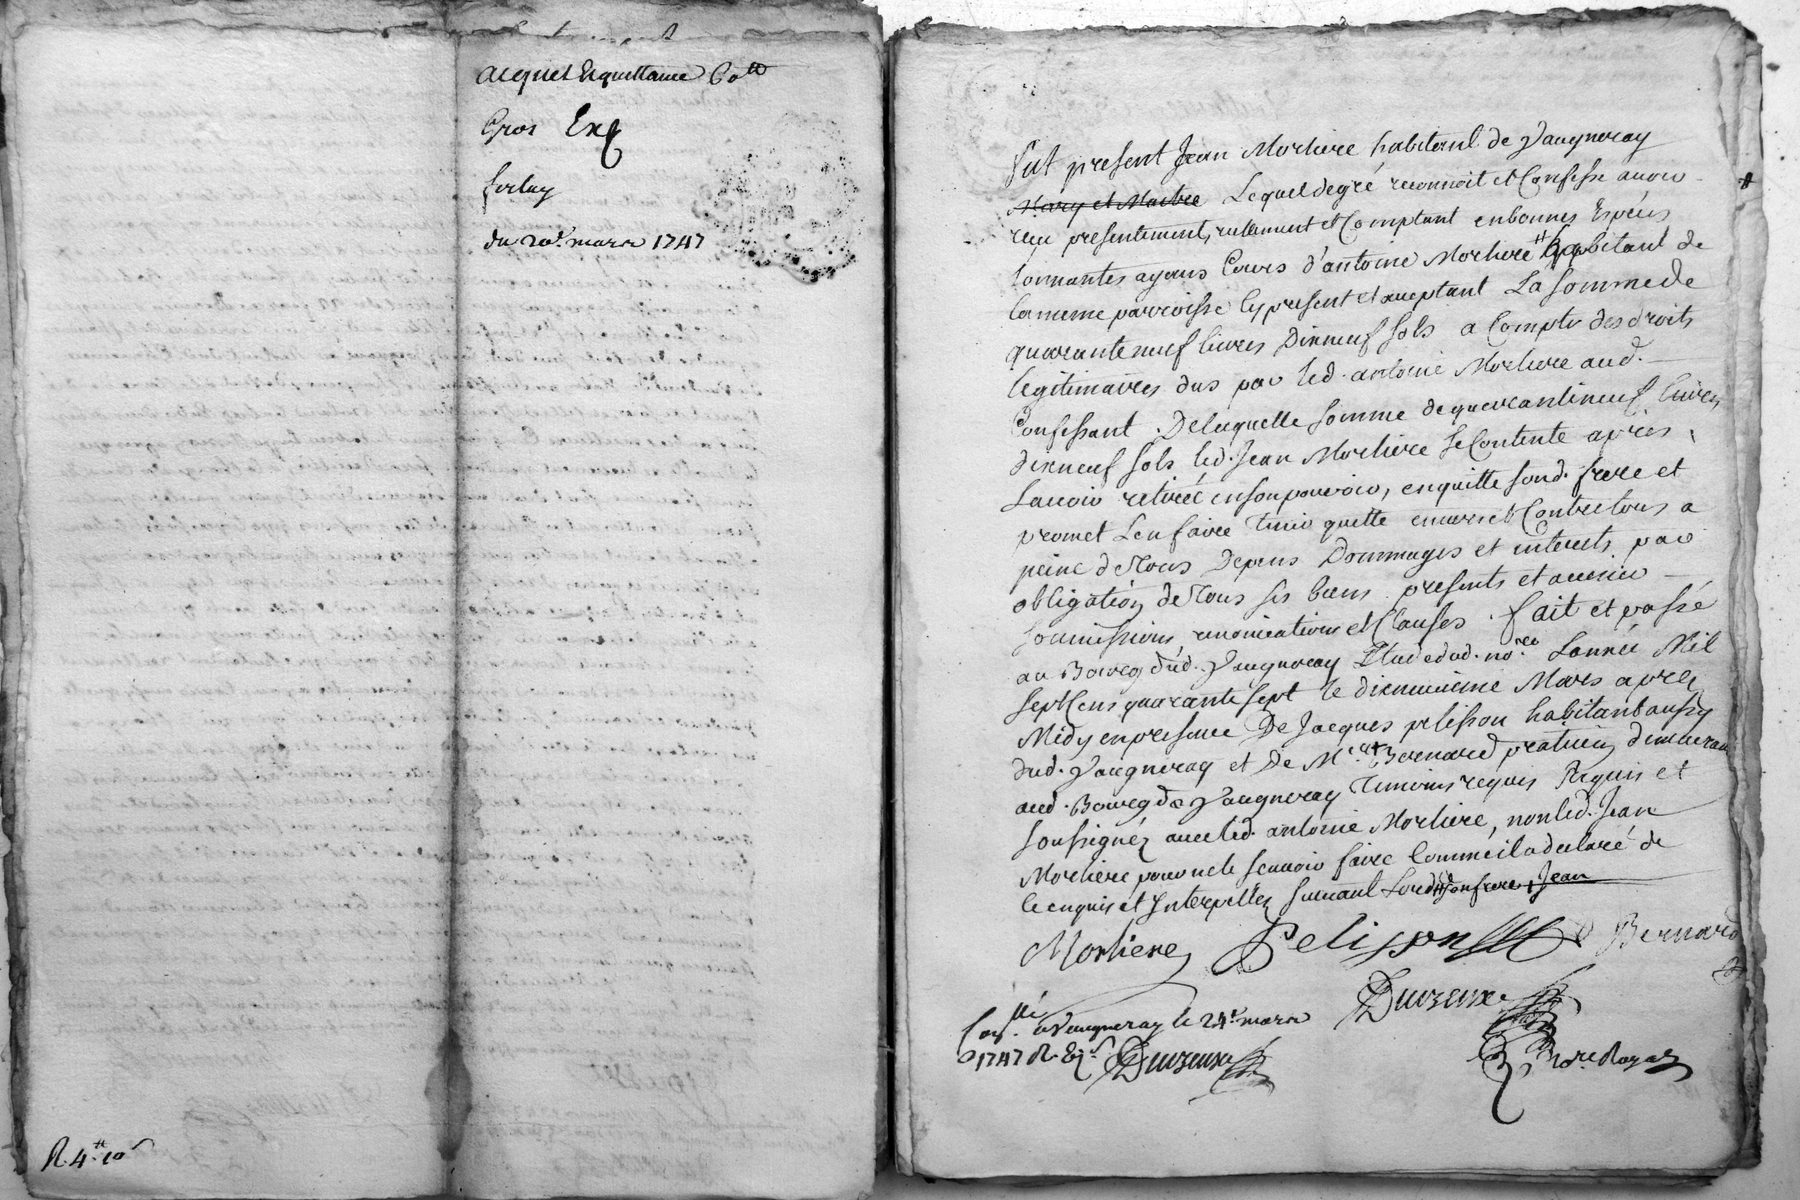 acquet Equittance
Gros Exp
du 20e. mars 1747
R. 4 tt. 10 s
Fut present Jean Morliere habitant de Vaugneray
Mary et Maitre Lequel de gré reconnoit et Confesse avoir
reçu presentement, reellement et Comptant en bonnes Espéces
sonnantes ayans Cours d'antoine Morliere habitant de
la meme parroisse Cy present et acceptant La somme de
quarante neuf livres Dixneuf sols a Compte des droits
legitimaires dus par led. antoine Morliere aud.
Confessant. De laquelle somme de quarantineuf livres
dixneuf sols led. Jean Morliere se Contente apres
Lavoir retirée en son pouvoir, en quitte sond. frere et
promet Len faire tenir quitte envers et Contre tous a
peine de Tous Depens Dommages et interets par
obligation de Tous ses biens presents et avenir
soumissions renonciations et Clauses. fait et passé
au Bourg dud. Vaugneray Etude dud. nore. Lannée Mil
sept Cens quarante sept le dixneuvieme Mars apres
Midy en presence De Jacques pelisson habitant aussy
dud. Vaugneray et De Bernard praticien demeurant
aud. Bourg de Vaugneray Temoins requis Requis et
soussignéz avec led. antoine Morliere, non led. Jean
Morliere pour ne le scavoir faire Comme il a declaré de
ce enquis et Interpellez suivant Lord. son frere Jean
Morliere Pelisson Bernard
Duvreux
Conllé. a Vaugneray le 24e. mars
1747 R.
Duvreux
Nore. Royal